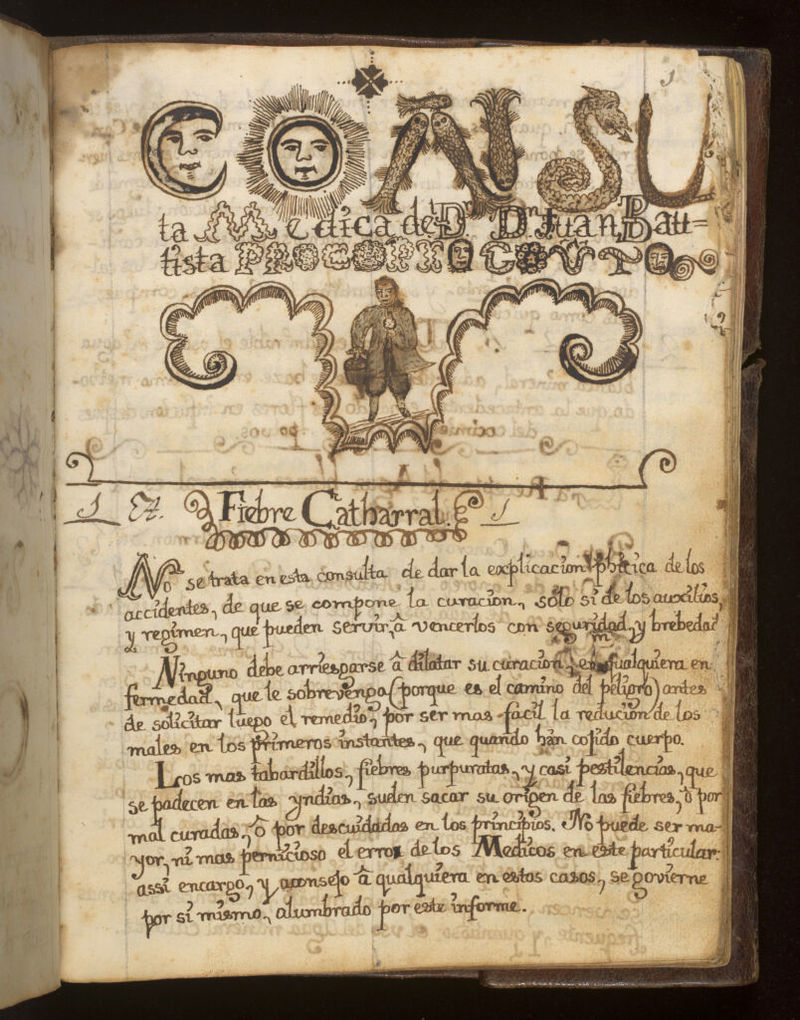 1
CONSU
ta Medica del Dr. Dn Juan Bau=
tista PROCOPIO COUTO
1 Et. Fiebre Catharral. 1
No se trata en esta consulta de dar la explicacion phicica de los
accidentes, de que se compone la curacion, sólo si de los auxilios,
y regimen, que pueden servir, â vencerlos con seguridad, y brebedad
Ninguno debe arriesgarse â dilatar su curacion, en qualquiera en
fermedad, que le sobrevenga (porque es el camino del peligro) antes
de solicitar luego el remedio, por ser mas facil la reducion de los
males en los primeros instantes, que quando hân cojido cuerpo.
Los mas tabardillos, fiebres purpuratas, y casi pestilencias, que
se padecen en las yndias, suelen sacar su origen de las fiebres, ô por
mal curadas, ô por descuidadas en los principios. No puede ser ma-
yor, ni mas pernicioso el error de los Medicos en este particular:
assi encargo, y aconsejo â qualquiera en estos casos, se govierne
por si mismo, alumbrado por este informe.